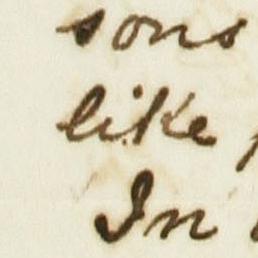 sons
like
In